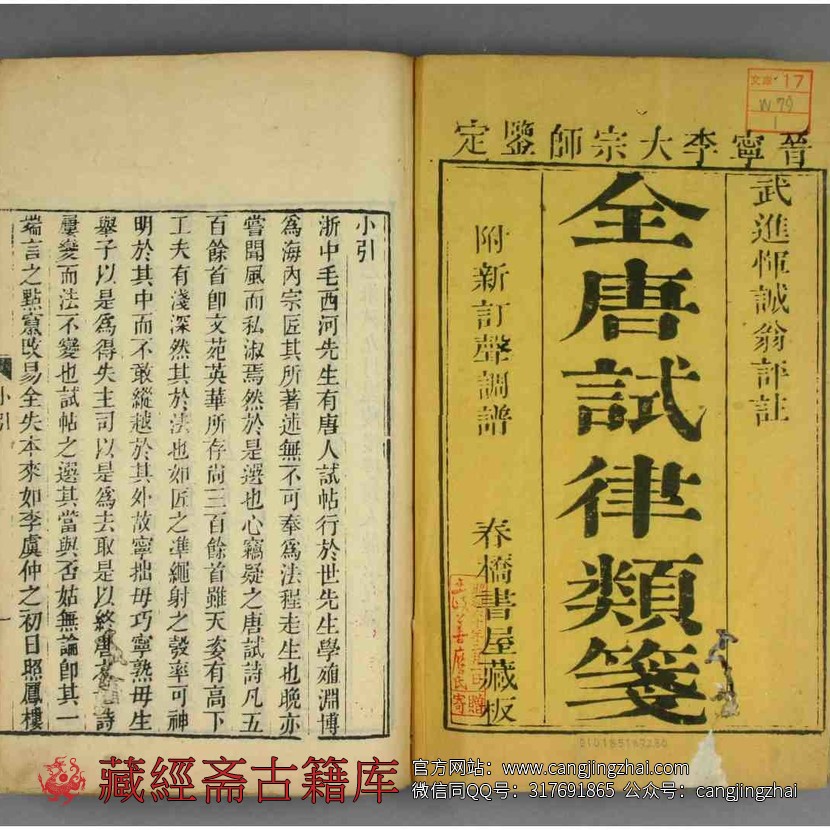 晉寧李大宗師鑒定
武進惲誠翁評註
全唐試律類箋
附新訂聲調譜
春橋書屋藏板
文庫 17
W 79
1
小引
浙中毛西河先生有唐人試帖行於世先生學殖淵博
為海內宗匠其所著述無不可奉為法程走生也晚亦
嘗聞風而私淑焉然於是選也心竊疑之唐試詩凡五
百餘首卽文苑英華所存尚三百餘首雖天姿有高下
工夫有淺深然其於法也如匠之凖繩射之彀率可神
明於其中而不敢縱越於其外故寧拙毋巧寧熟毋生
舉子以是為得失主司以是為去取是以終唐之詩
屢變而法不變也試帖之選其當與否姑無論卽其一
端言之點竄改易全失本來如李虞仲之初日照鳳樓
小引
一
藏經斋古籍库
官方网站：www.cangjingzhai.com
微信同QQ号：317691865 公众号：cangjingzhai